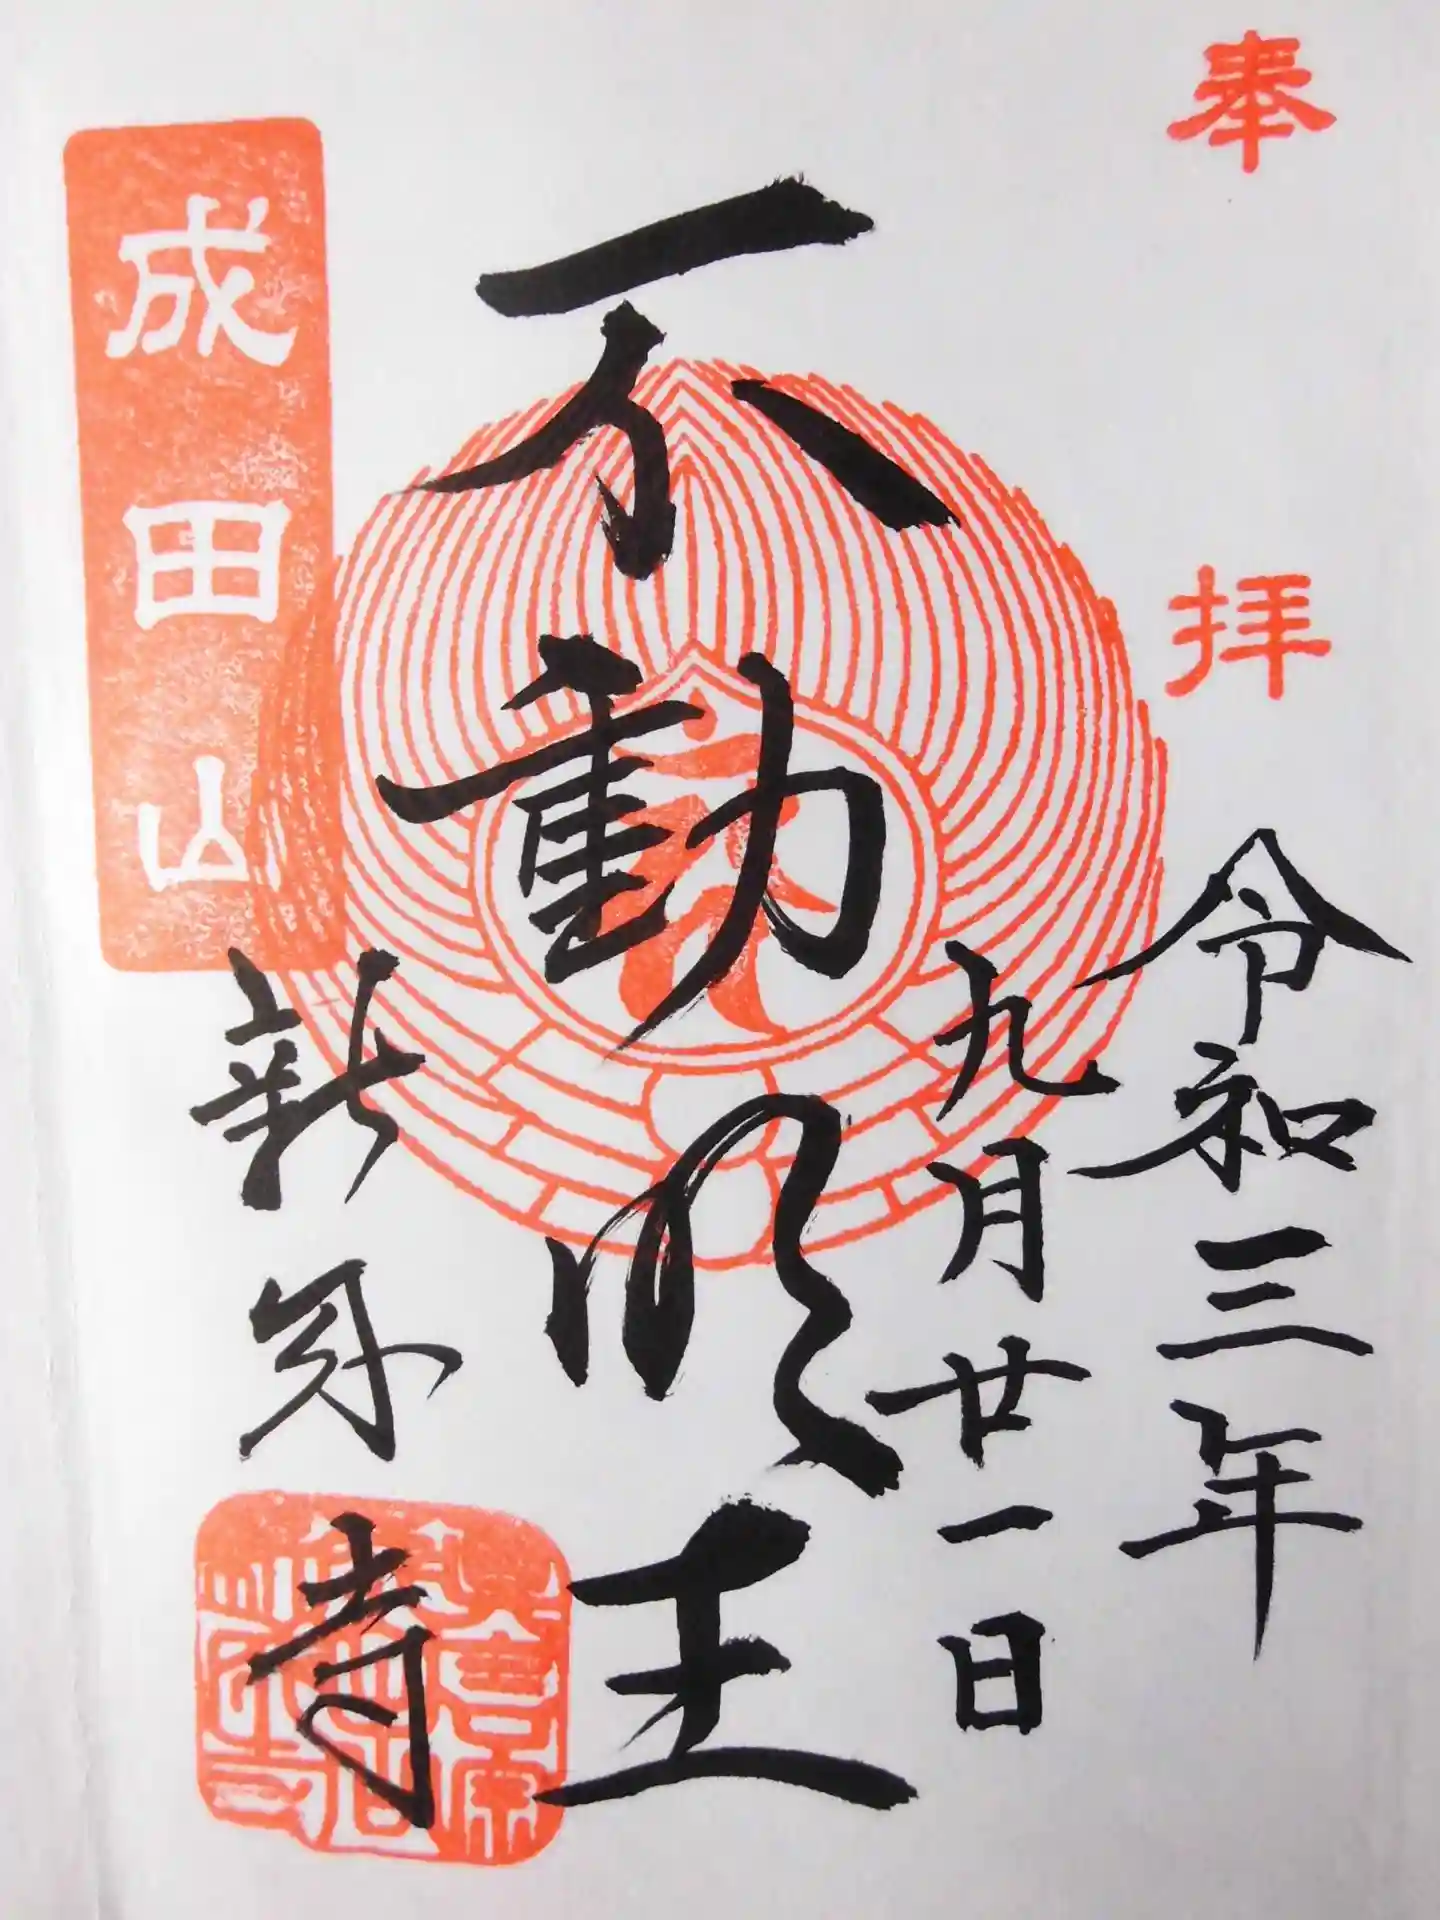 奉拝
令和三年
九月廿一日
不動明王
成田山
新